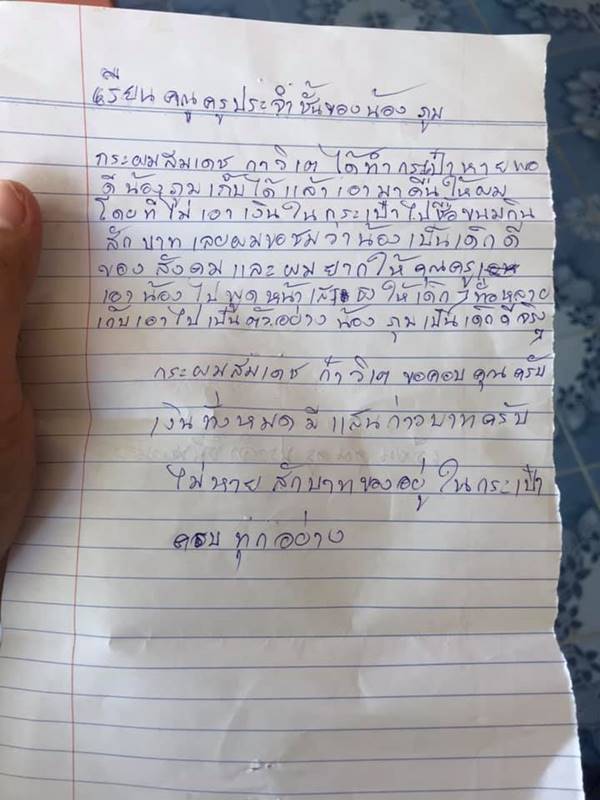 เรียนคุณครูประจำชั้นของน้อง ภูม
กระผมสมเดช กาวิเต ได้ทำกระเป๋าหายพอ
ดีน้องภูมเก็บได้แล้วเอามาคืนให้ผม
โดยที่ไม่เอาเงินในกระเป๋าไปซื้อขนมกิน
สักบาทเลยผมขอชมว่าน้องเป็นเด็กดี
ของสังคมและผมยากให้คุณครู
เอาน้องไปพูดหน้าเสาธงให้เด็กๆทั้งหลาย
เก็บเอาไปเป็นตัวอย่างน้อง ภูมเป็นเด็กดีจริงๆ
กระผมสมเดช ก๋าวิเต ขอคอบคุณครับ
เงินทั้งหมดมีแสนก่าวบาทครับ
ไม่หายสักบาทของอยู่ในกระเป๋า
ครบทุกอย่าง